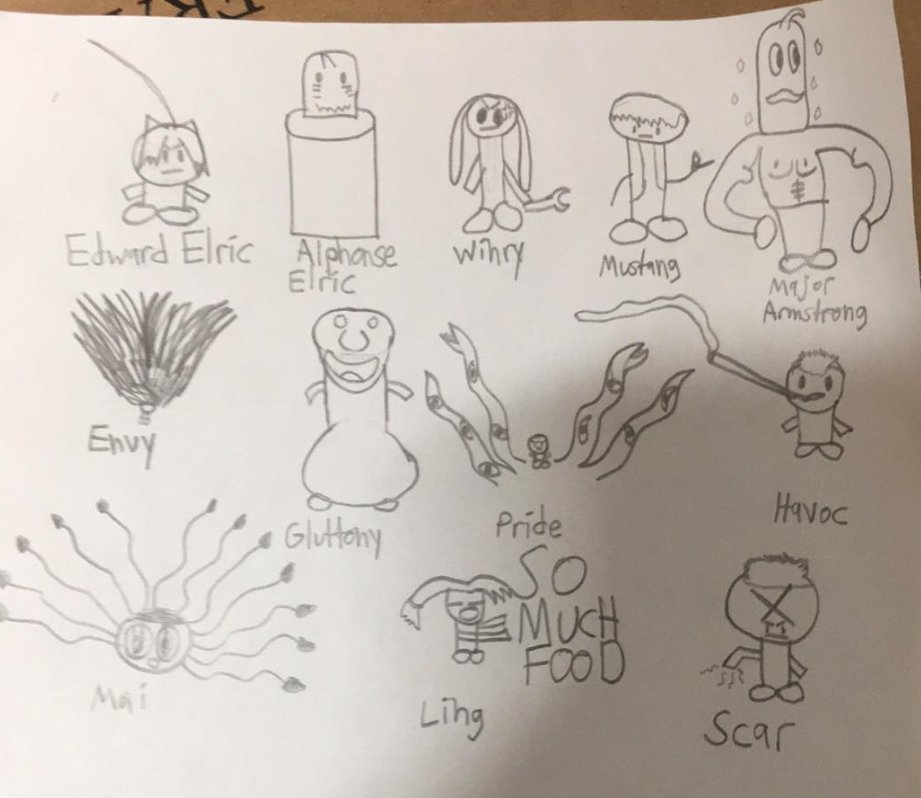 Edward Elric
Alphonse
Elric
Winry
Mustang
Major
Armstrong
Envy
Gluttony
Pride
Havoc
Mai
Ling
SO
MUCH
FOOD
Scar